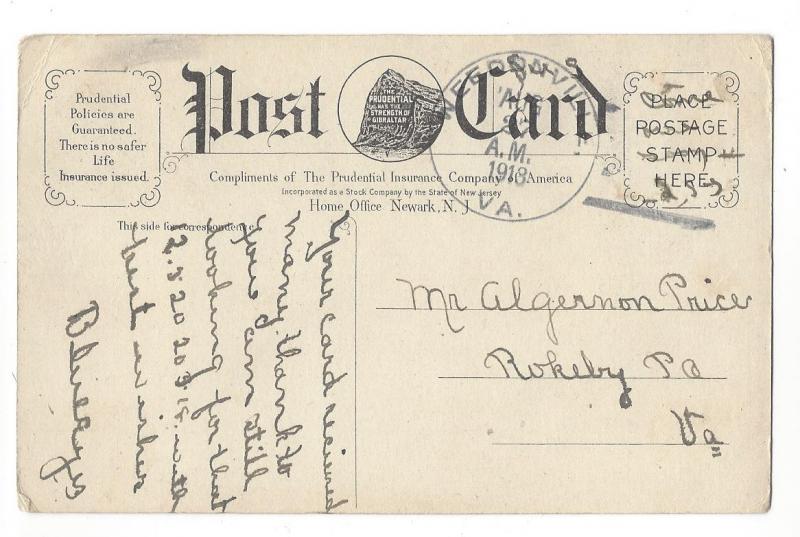 Prudential
Policies are
Guaranteed.
There is no safer
Life
Insurance issued.
Post Card
THE
PRUDENTIAL
HAS THE
STRENGTH OF
GIBRALTAR
A.M.
1918
VA.
PLACE
POSTAGE
STAMP
HERE
Compliments of The Prudential Insurance Company of America
Incorporated as a Stock Company by the State of New Jersey
Home Office Newark, N. J.
This side for correspondence
Your card recieved
many thanks to
you am still
looking for that
with
best wishes
Mr Algernon Price
Rokeby Po
Va